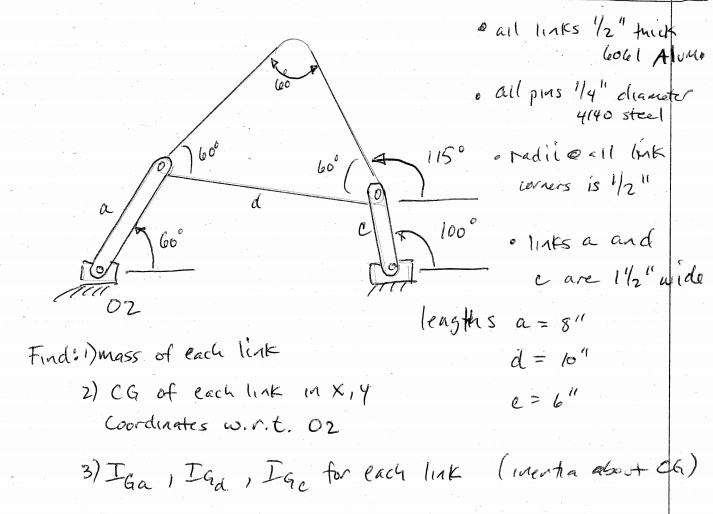 • all links 1/2" thick
6061 Alum.
• all pins 1/4" diameter
4140 steel
• radii @ all link
corners is 1/2"
• links a and
c are 1 1/2" wide
60
60°
60°
115°
a
d
c
60°
100°
O2
lengths a = 8"
d = 10"
c = 6"
Find: 1) mass of each link
2) CG of each link in X, Y
Coordinates w.r.t. O2
3) IGa, IGd, IGc for each link (inertia about CG)